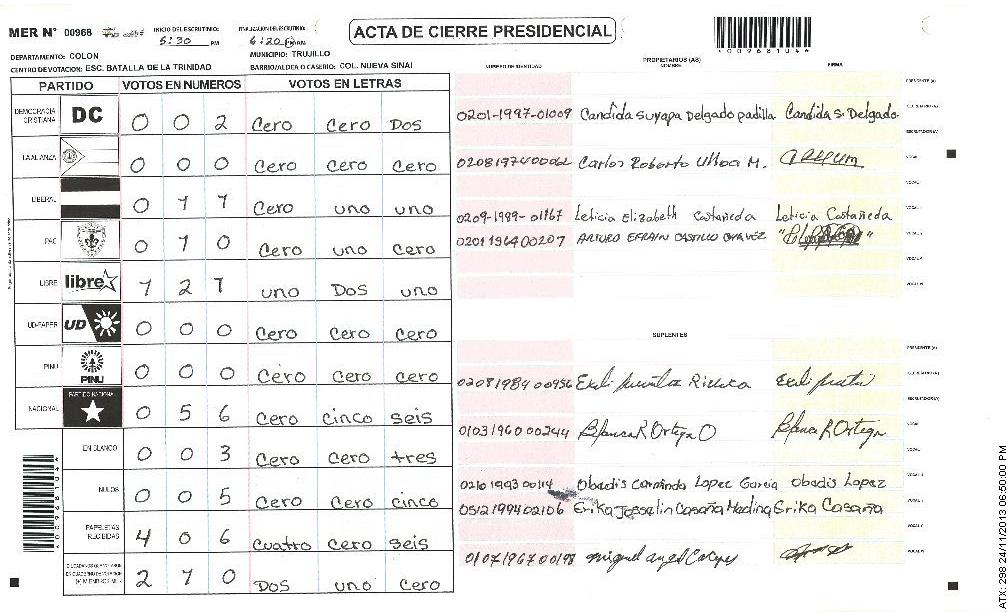 MER N° 00968 INICIO DEL ESCRUTINIO: 5:30 PM FINALIZACION DEL ESCRUTINIO: 6:20 PM
ACTA DE CIERRE PRESIDENCIAL
DEPARTAMENTO: COLON MUNICIPIO: TRUJILLO
CENTRO DE VOTACION: ESC. BATALLA DE LA TRINIDAD BARRIO/ALDEA O CASERIO: COL. NUEVA SINAI
PARTIDO VOTOS EN NUMEROS VOTOS EN LETRAS
DEMOCRACIA CRISTIANA DC 0 0 2 Cero Cero Dos
LA ALIANZA 0 0 0 Cero Cero Cero
LIBERAL 0 1 1 Cero uno uno
PAC 0 1 0 Cero uno Cero
LIBRE libre 1 2 1 uno Dos uno
UD-FAPER UD 0 0 0 Cero Cero Cero
PINU PINU 0 0 0 Cero Cero Cero
NACIONAL PARTIDO NACIONAL 0 5 6 Cero cinco seis
EN BLANCO 0 0 3 Cero Cero tres
NULOS 0 0 5 Cero Cero cinco
PAPELETAS RECIBIDAS 4 0 6 Cuatro Cero seis
2 1 0 Dos uno Cero
NUMERO DE IDENTIDAD PROPIETARIOS (AS) NOMBRE FIRMA
0201-1997-01009 Candida Suyapa Delgado padilla Candida S. Delgado
Carlos Roberto Ulloa M.
0209-1989-01167 Leticia Elizabeth Castañeda Leticia Castañeda
0201196400207 ARTURO EFRAIN CASTILLO CHAVEZ
SUPLENTES
0208198400956
0103196000244 Blanca R Ortega O Blanca R Ortega
0210199300114 Obadis Lopez Garcia Obadis Lopez
0512199402106 Erika Josselin Casaña Medina Erika Casaña
0107196700198 miguel angel
ATX: 298 24/11/2013 06:50:00 PM